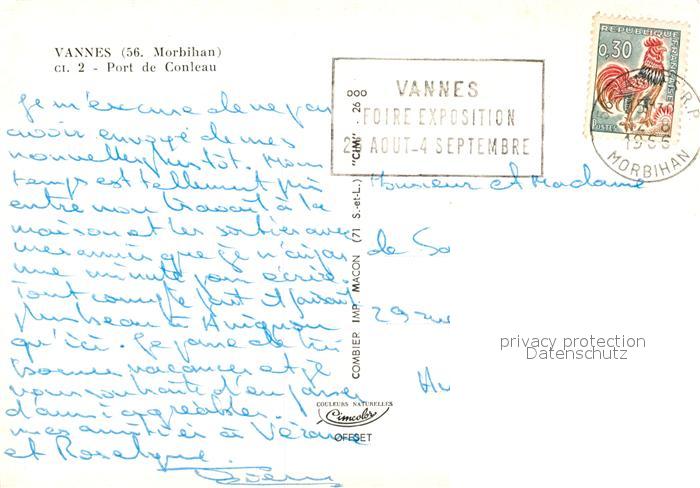 VANNES (56. Morbihan)
CI. 2 - Port de Conleau
Je m'excuse de ne pas
avoir envoyé de mes
nouvelles plus tôt. Mon
temps est tellement pris
entre mon travail à la
maison et les sorties avec
mes amis que je n'ai pas
une minute pour écrire.
Tout compte fait il faisait
plus beau à Avignon
qu'ici. Je passe de très
bonnes vacances et je
vous souhaite d'en passer
d'aussi agréables.
mes amitiés à
et Roselyne.
COMBIER IMP. MACON (71 S.-et-L.) "CIM" - 26
COULEURS NATURELLES
Cimcolor
OFFSET
VANNES
FOIRE EXPOSITION
AOUT-4 SEPTEMBRE
REPUBLIQUE FRANÇAISE
0,30
POSTES
R.P.
MORBIHAN
Monsieur et Madame
de Sa
29 rue
privacy protection
Datenschutz